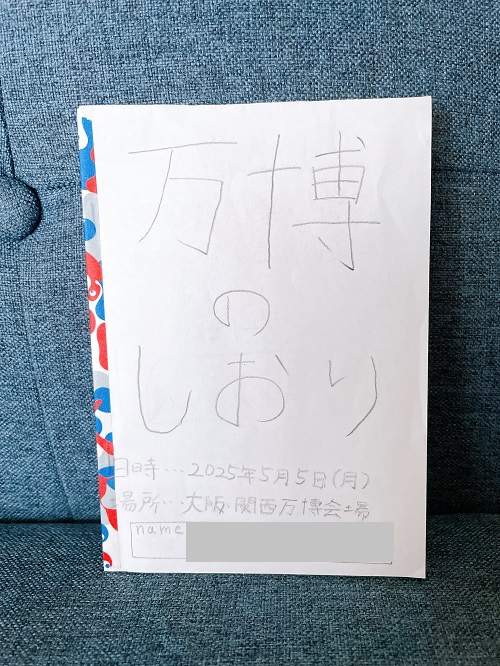 万博
の
しおり
日時…2025年5月5日(月)
場所…大阪・関西万博会場
name